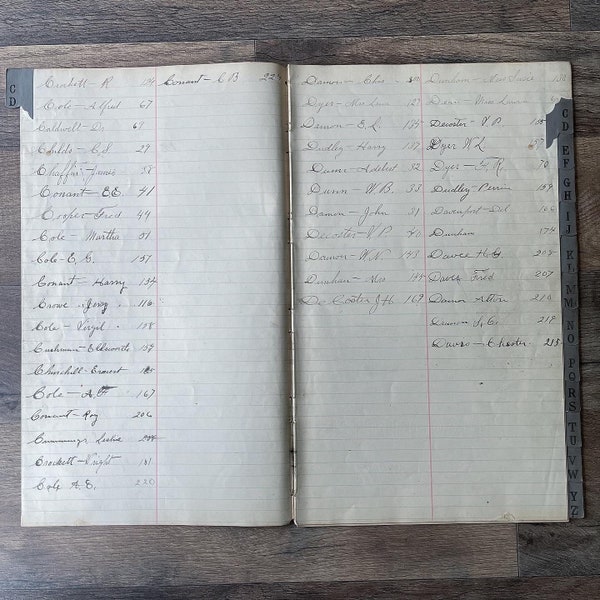 C
D
Crockett - R
Cole - Alfred 67
Caldwell - Dr 69
Childs - C.S. 29
Chaffin - James 58
Conant - E.E. 41
Cooper - Fred 49
Cole - Martha 51
Cole - E. G. 157
Conant - Harry 134
Crowe - Jerry 116
Cole - Virgil 158
Cushman - Ellsworth 159
Churchill - Ernest
Cole - A.F 167
Conant - Roy 206
Cummings Leslie
Crockett - Wright 181
Cole A.E. 220
Conant - C B 224
Damon - Chas
Dyer - Mrs 127
Damon - E. L.
Dudley - Harry 137
Damon - Adelbert 52
Dunn - W.B. 35
Damon - John 31
Decoster - V P 40
Damon - W.N. 143
Dunham - Mrs
De Coster J H 169
Dunham - Mrs Susie
Mrs Laura
Decoster - V.P.
Dyer W L
Dyer - F. R. 70
Dudley - Perrin
Davenport - Del
Dunham 174
Davee H G
Davis Fred 207
Damon Alton 210
Damon S. C. 219
Davis - Chester 213
C
D
EF
GH
IJ
KL
M
NO
PQRS
TU
VW
YZ